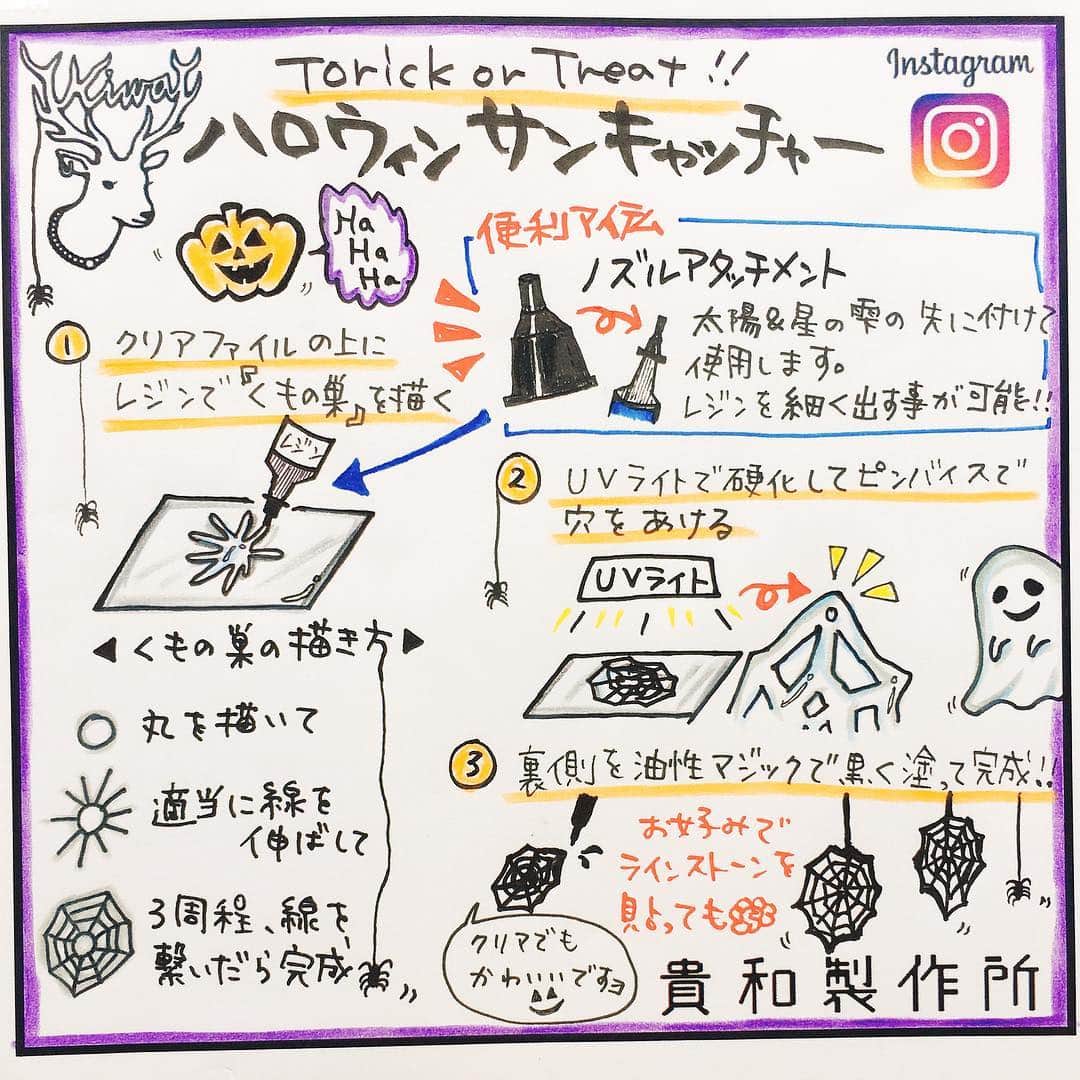 Kiwa
Torick or Treat!!
Instagram
ハロウィンサンキャッチャー
Ha
Ha
Ha
便利アイテム
ノズルアタッチメント
太陽&星の雫の先に付けて
使用します。
レジンを細く出す事が可能!!
1
クリアファイルの上に
レジンで『くもの巣』を描く
レジン
◀くもの巣の描き方▶
丸を描いて
適当に線を
伸ばして
3周程、線を
繋いだら完成
2
UVライトで硬化してピンバイスで
穴をあける
UVライト
3
裏側を油性マジックで黒く塗って完成!!
お好みで
ラインストーンを
貼っても
クリアでも
かわいいですョ
貴和製作所